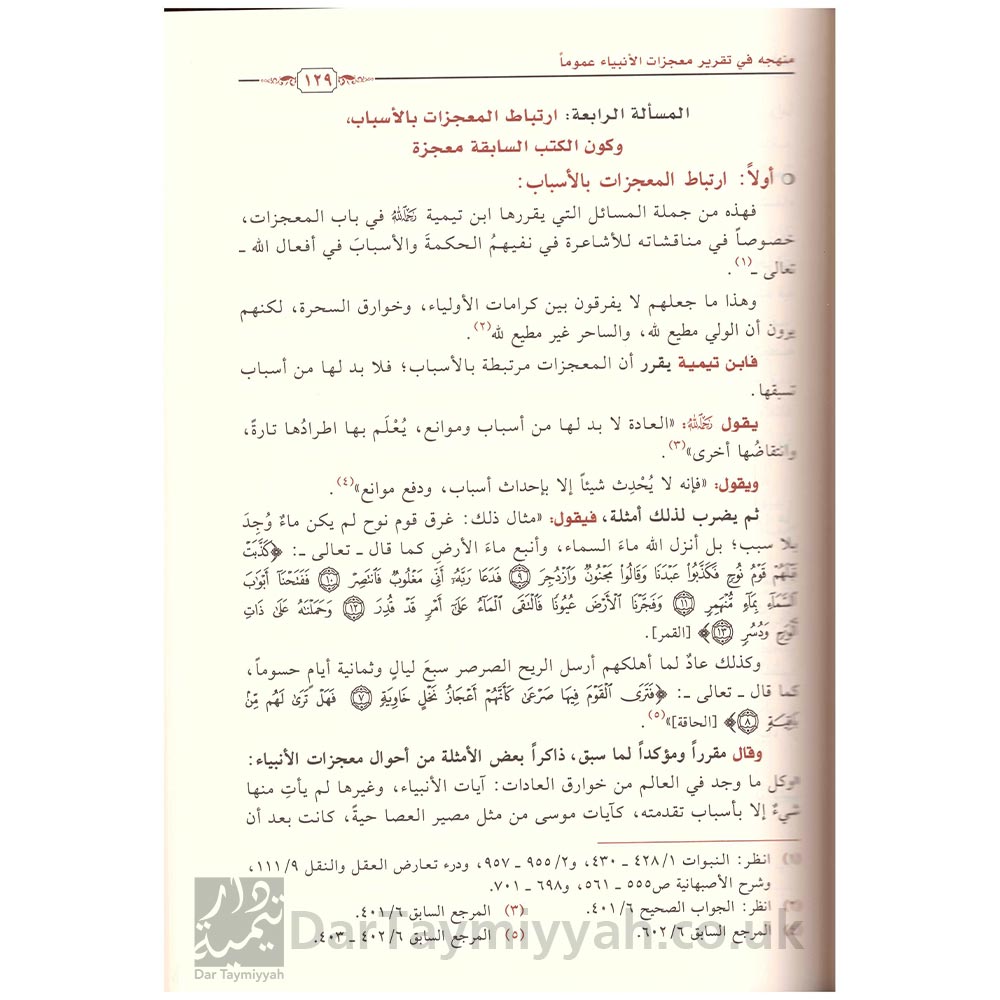 منهجه في تقرير معجزات الأنبياء عموماً
١٢٩
المسألة الرابعة: ارتباط المعجزات بالأسباب،
وكون الكتب السابقة معجزة
أولاً: ارتباط المعجزات بالأسباب:
فهذه من جملة المسائل التي يقررها ابن تيمية رَحِمَهُ اللهُ في باب المعجزات،
خصوصاً في مناقشاته للأشاعرة في نفيهمُ الحكمةَ والأسبابَ في أفعال الله ـ
تعالى ـ(١).
وهذا ما جعلهم لا يفرقون بين كرامات الأولياء، وخوارق السحرة، لكنهم
يرون أن الولي مطيع لله، والساحر غير مطيع لله(٢).
فابن تيمية يقرر أن المعجزات مرتبطة بالأسباب؛ فلا بد لها من أسباب
تسبقها.
يقول رَحِمَهُ اللهُ: «العادة لا بد لها من أسباب وموانع، يُعْلَم بها اطرادُها تارةً،
وانتقاضُها أخرى»(٣).
ويقول: «فإنه لا يُحْدِث شيئاً إلا بإحداث أسباب، ودفع موانع»(٤).
ثم يضرب لذلك أمثلة، فيقول: «مثال ذلك: غرق قوم نوح لم يكن ماءٌ وُجِدَ
بلا سبب؛ بل أنزل الله ماءَ السماء، وأنبع ماءَ الأرضِ كما قال ـ تعالى ـ: ﴿كَذَّبَتْ
قَبْلَهُمْ قَوْمُ نُوحٍ فَكَذَّبُوا۟ عَبْدَنَا وَقَالُوا۟ مَجْنُونٌ وَٱزْدُجِرَ ٩ فَدَعَا رَبَّهُۥٓ أَنِّى مَغْلُوبٌ فَٱنتَصِرْ ١٠ فَفَتَحْنَآ أَبْوَٰبَ
ٱلسَّمَآءِ بِمَآءٍ مُّنْهَمِرٍ ١١ وَفَجَّرْنَا ٱلْأَرْضَ عُيُونًا فَٱلْتَقَى ٱلْمَآءُ عَلَىٰٓ أَمْرٍ قَدْ قُدِرَ ١٢ وَحَمَلْنَٰهُ عَلَىٰ ذَاتِ
أَلْوَٰحٍ وَدُسُرٍ ١٣﴾ [القمر].
وكذلك عادٌ لما أهلكهم أرسل الريح الصرصر سبعَ ليالٍ وثمانية أيامٍ حسوماً،
كما قال ـ تعالى ـ: ﴿فَتَرَى ٱلْقَوْمَ فِيهَا صَرْعَىٰ كَأَنَّهُمْ أَعْجَازُ نَخْلٍ خَاوِيَةٍ ٧ فَهَلْ تَرَىٰ لَهُم مِّنۢ
بَاقِيَةٍ ٨﴾ [الحاقة]»(٥).
وقال مقرراً ومؤكداً لما سبق، ذاكراً بعض الأمثلة من أحوال معجزات الأنبياء:
«وكل ما وجد في العالم من خوارق العادات: آيات الأنبياء، وغيرها لم يأتِ منها
شيءٌ إلا بأسباب تقدمته، كآيات موسى من مثل مصير العصا حيةً، كانت بعد أن
(١) انظر: النبوات ٤٢٨/١ ـ ٤٣٠، و٩٥٥/٢ ـ ٩٥٧، ودرء تعارض العقل والنقل ١١١/٩،
وشرح الأصبهانية ص٥٥٥ ـ ٥٦١، و٦٩٨ ـ ٧٠١.
(٢) انظر: الجواب الصحيح ٤٠١/٦. (٣) المرجع السابق ٤٠١/٦.
المرجع السابق ٦٠٢/٦. (٥) المرجع السابق ٤٠٢/٦ ـ ٤٠٣.
دار تيمية
Dar Taymiyyah
DarTaymiyyah.co.uk